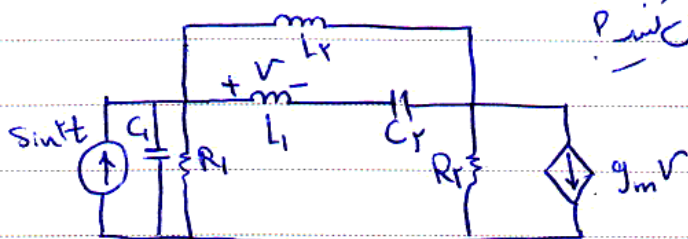 L۲
+ V -
L₁
C۲
Sin۲t
C₁
R₁
R۲
gₘV